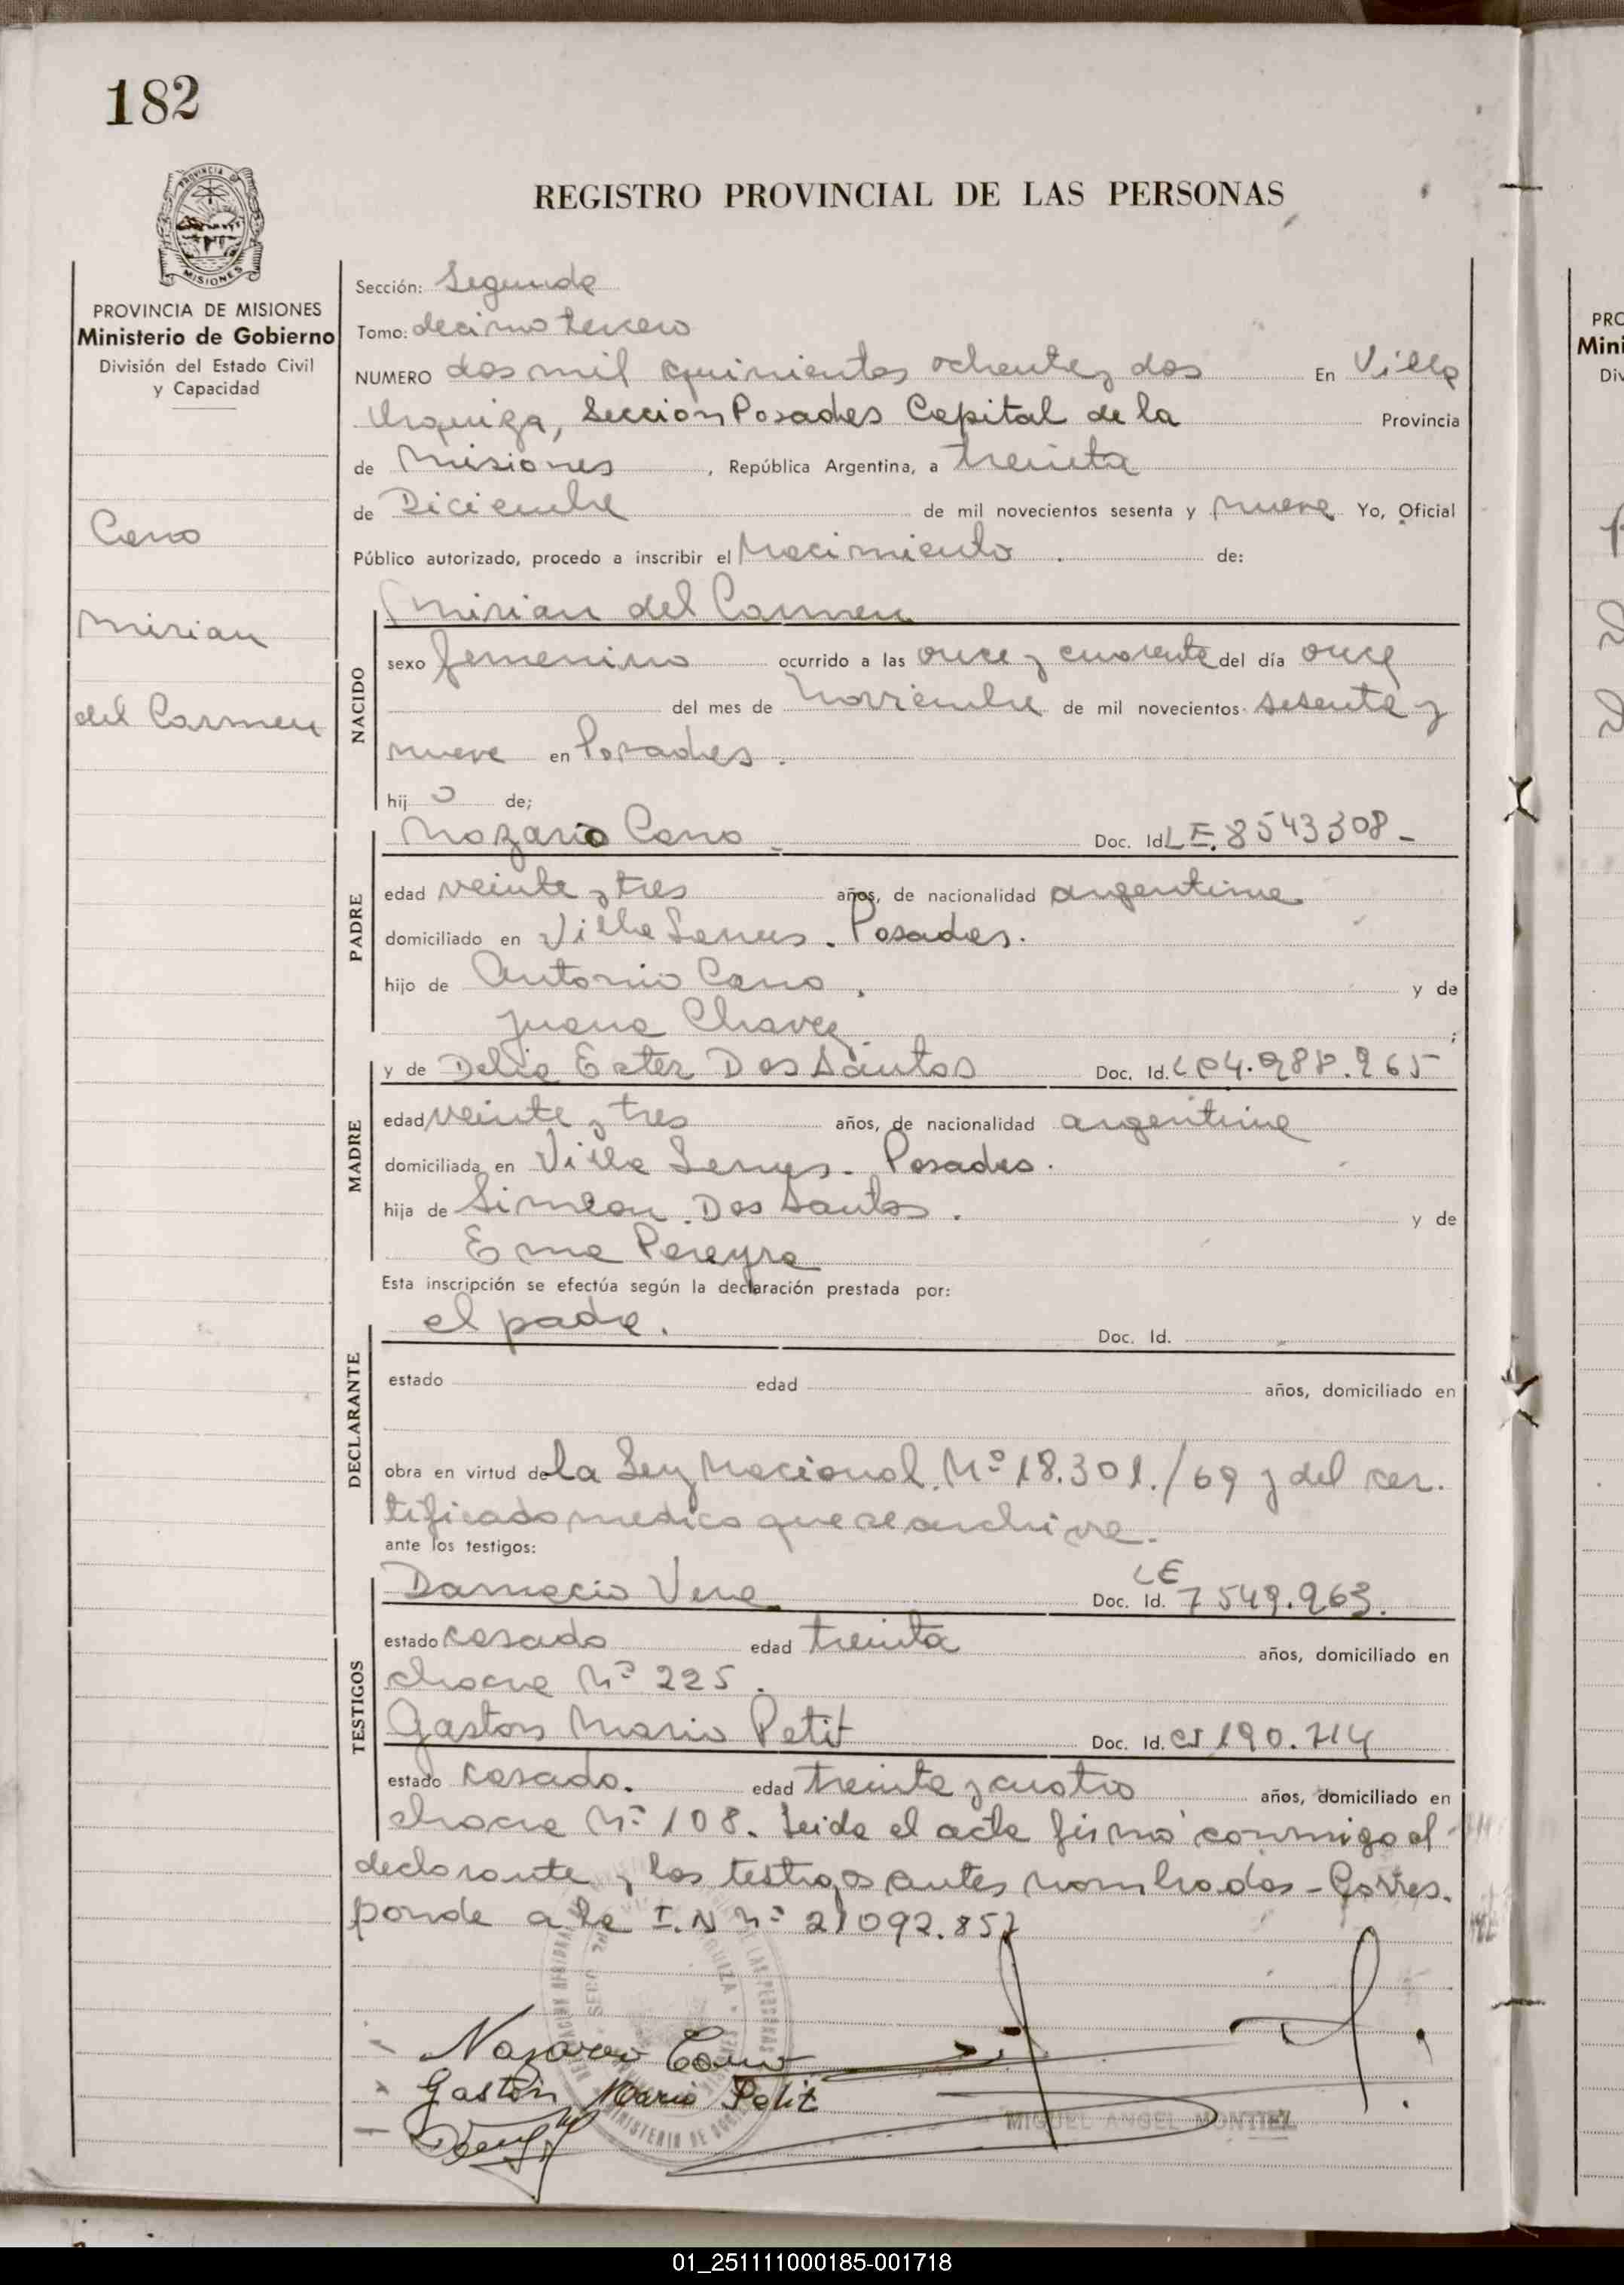 182
PROVINCIA DE
MISIONES
REGISTRO PROVINCIAL DE LAS PERSONAS
PROVINCIA DE MISIONES
Ministerio de Gobierno
División del Estado Civil
y Capacidad
Cano
Mirian
del Carmen
Sección: Segunda
Tomo: decimo tercero
NUMERO dos mil quinientos ochenta y dos En Villa
Urquiza, Seccion Posadas Capital de la Provincia
de Misiones, República Argentina, a treinta
de Diciembre de mil novecientos sesenta y nueve Yo, Oficial
Público autorizado, procedo a inscribir el Nacimiento de:
Mirian del Carmen
NACIDO
sexo femenino ocurrido a las once y cuarenta del día once
del mes de Noviembre de mil novecientos sesenta y
nueve en Posadas.
hij o de;
Nazario Cano Doc. Id. LE. 8543308-
PADRE
edad veinte y tres años, de nacionalidad argentina
domiciliado en Villa Lanus. Posadas.
hijo de Antonio Cano, y de
Juana Chavez ;
MADRE
y de Delia Ester Dos Santos Doc. Id. LC 4.988.265
edad veinte y tres años, de nacionalidad argentina
domiciliada en Villa Lanus. Posadas.
hija de Simeon Dos Santos. y de
Ema Pereyra
Esta inscripción se efectúa según la declaración prestada por:
DECLARANTE
el padre. Doc. Id.
estado edad años, domiciliado en
obra en virtud de la Ley Nacional Nº 18.301./69 y del cer.
tificado medico que se archiva.
ante los testigos:
TESTIGOS
Damacio Vera Doc. Id. LE 7549.963.
estado casado edad treinta años, domiciliado en
chacra Nº 225.
Gaston Mario Petit Doc. Id. CI 190.714
estado casado. edad treinta y cuatro años, domiciliado en
chacra Nº 108. Leida el acta firmó conmigo el
declarante y los testigos antes nombrados - Corres.
ponde a la I.N nº 21092.857
Nazario Cano
Gastón Mario Petit
MIGUEL ANGEL MONTIEL
PRO
Mini
Div
01_251111000185-001718